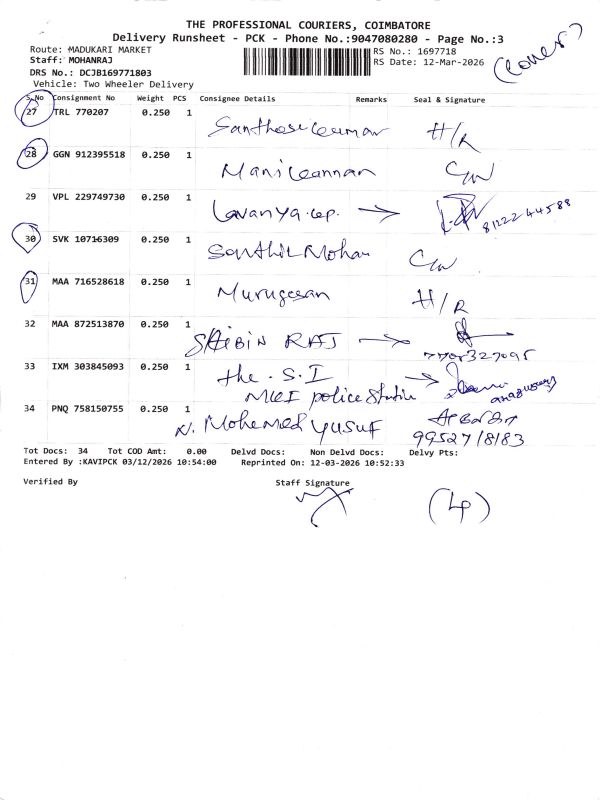 THE PROFESSIONAL COURIERS, COIMBATORE
Delivery Runsheet - PCK - Phone No.:9047080280 - Page No.:3
Route: MADUKARI MARKET RS No.: 1697718
Staff: MOHANRAJ RS Date: 12-Mar-2026
DRS No.: DCJB169771803
Vehicle: Two Wheeler Delivery
S.No Consignment No Weight PCS Consignee Details Remarks Seal & Signature
27 TRL 770207 0.250 1 Santhosekumar H/R
28 GGN 912395518 0.250 1 Manikannan C/N
29 VPL 229749730 0.250 1 Lavanya. → 8122244588
30 SVK 10716309 0.250 1 Senthil Mohan C/N
31 MAA 716528618 0.250 1 Murugesan H/R
32 MAA 872513870 0.250 1 SHIBIN RAJ → 7708327095
33 IXM 303845093 0.250 1 The . S. I →
police station
34 PNQ 758150755 0.250 1 N. Mohemed Yusuf
9952718183
Tot Docs: 34 Tot COD Amt: 0.00 Delvd Docs: Non Delvd Docs: Delvy Pts:
Entered By :KAVIPCK 03/12/2026 10:54:00 Reprinted On: 12-03-2026 10:52:33
Verified By Staff Signature